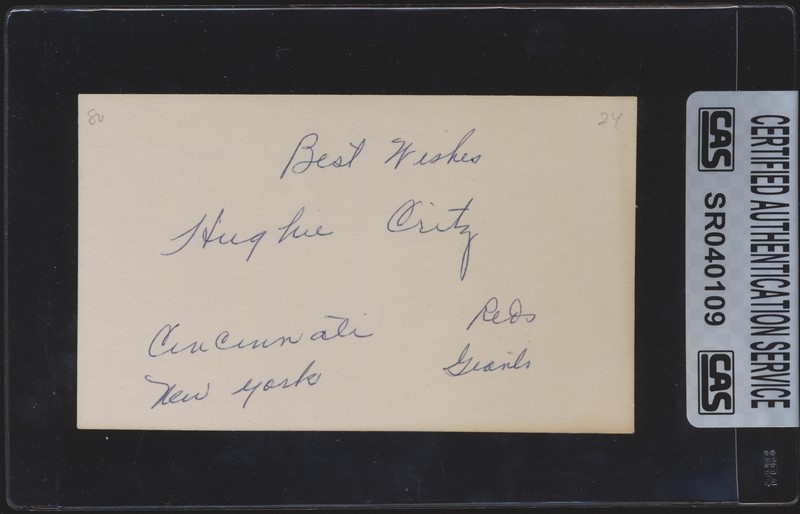 80 24
Best Wishes
Hughie Critz
Cincinnati Reds
New York Giants
CERTIFIED AUTHENTICATION SERVICE
CAS SR040109 CAS